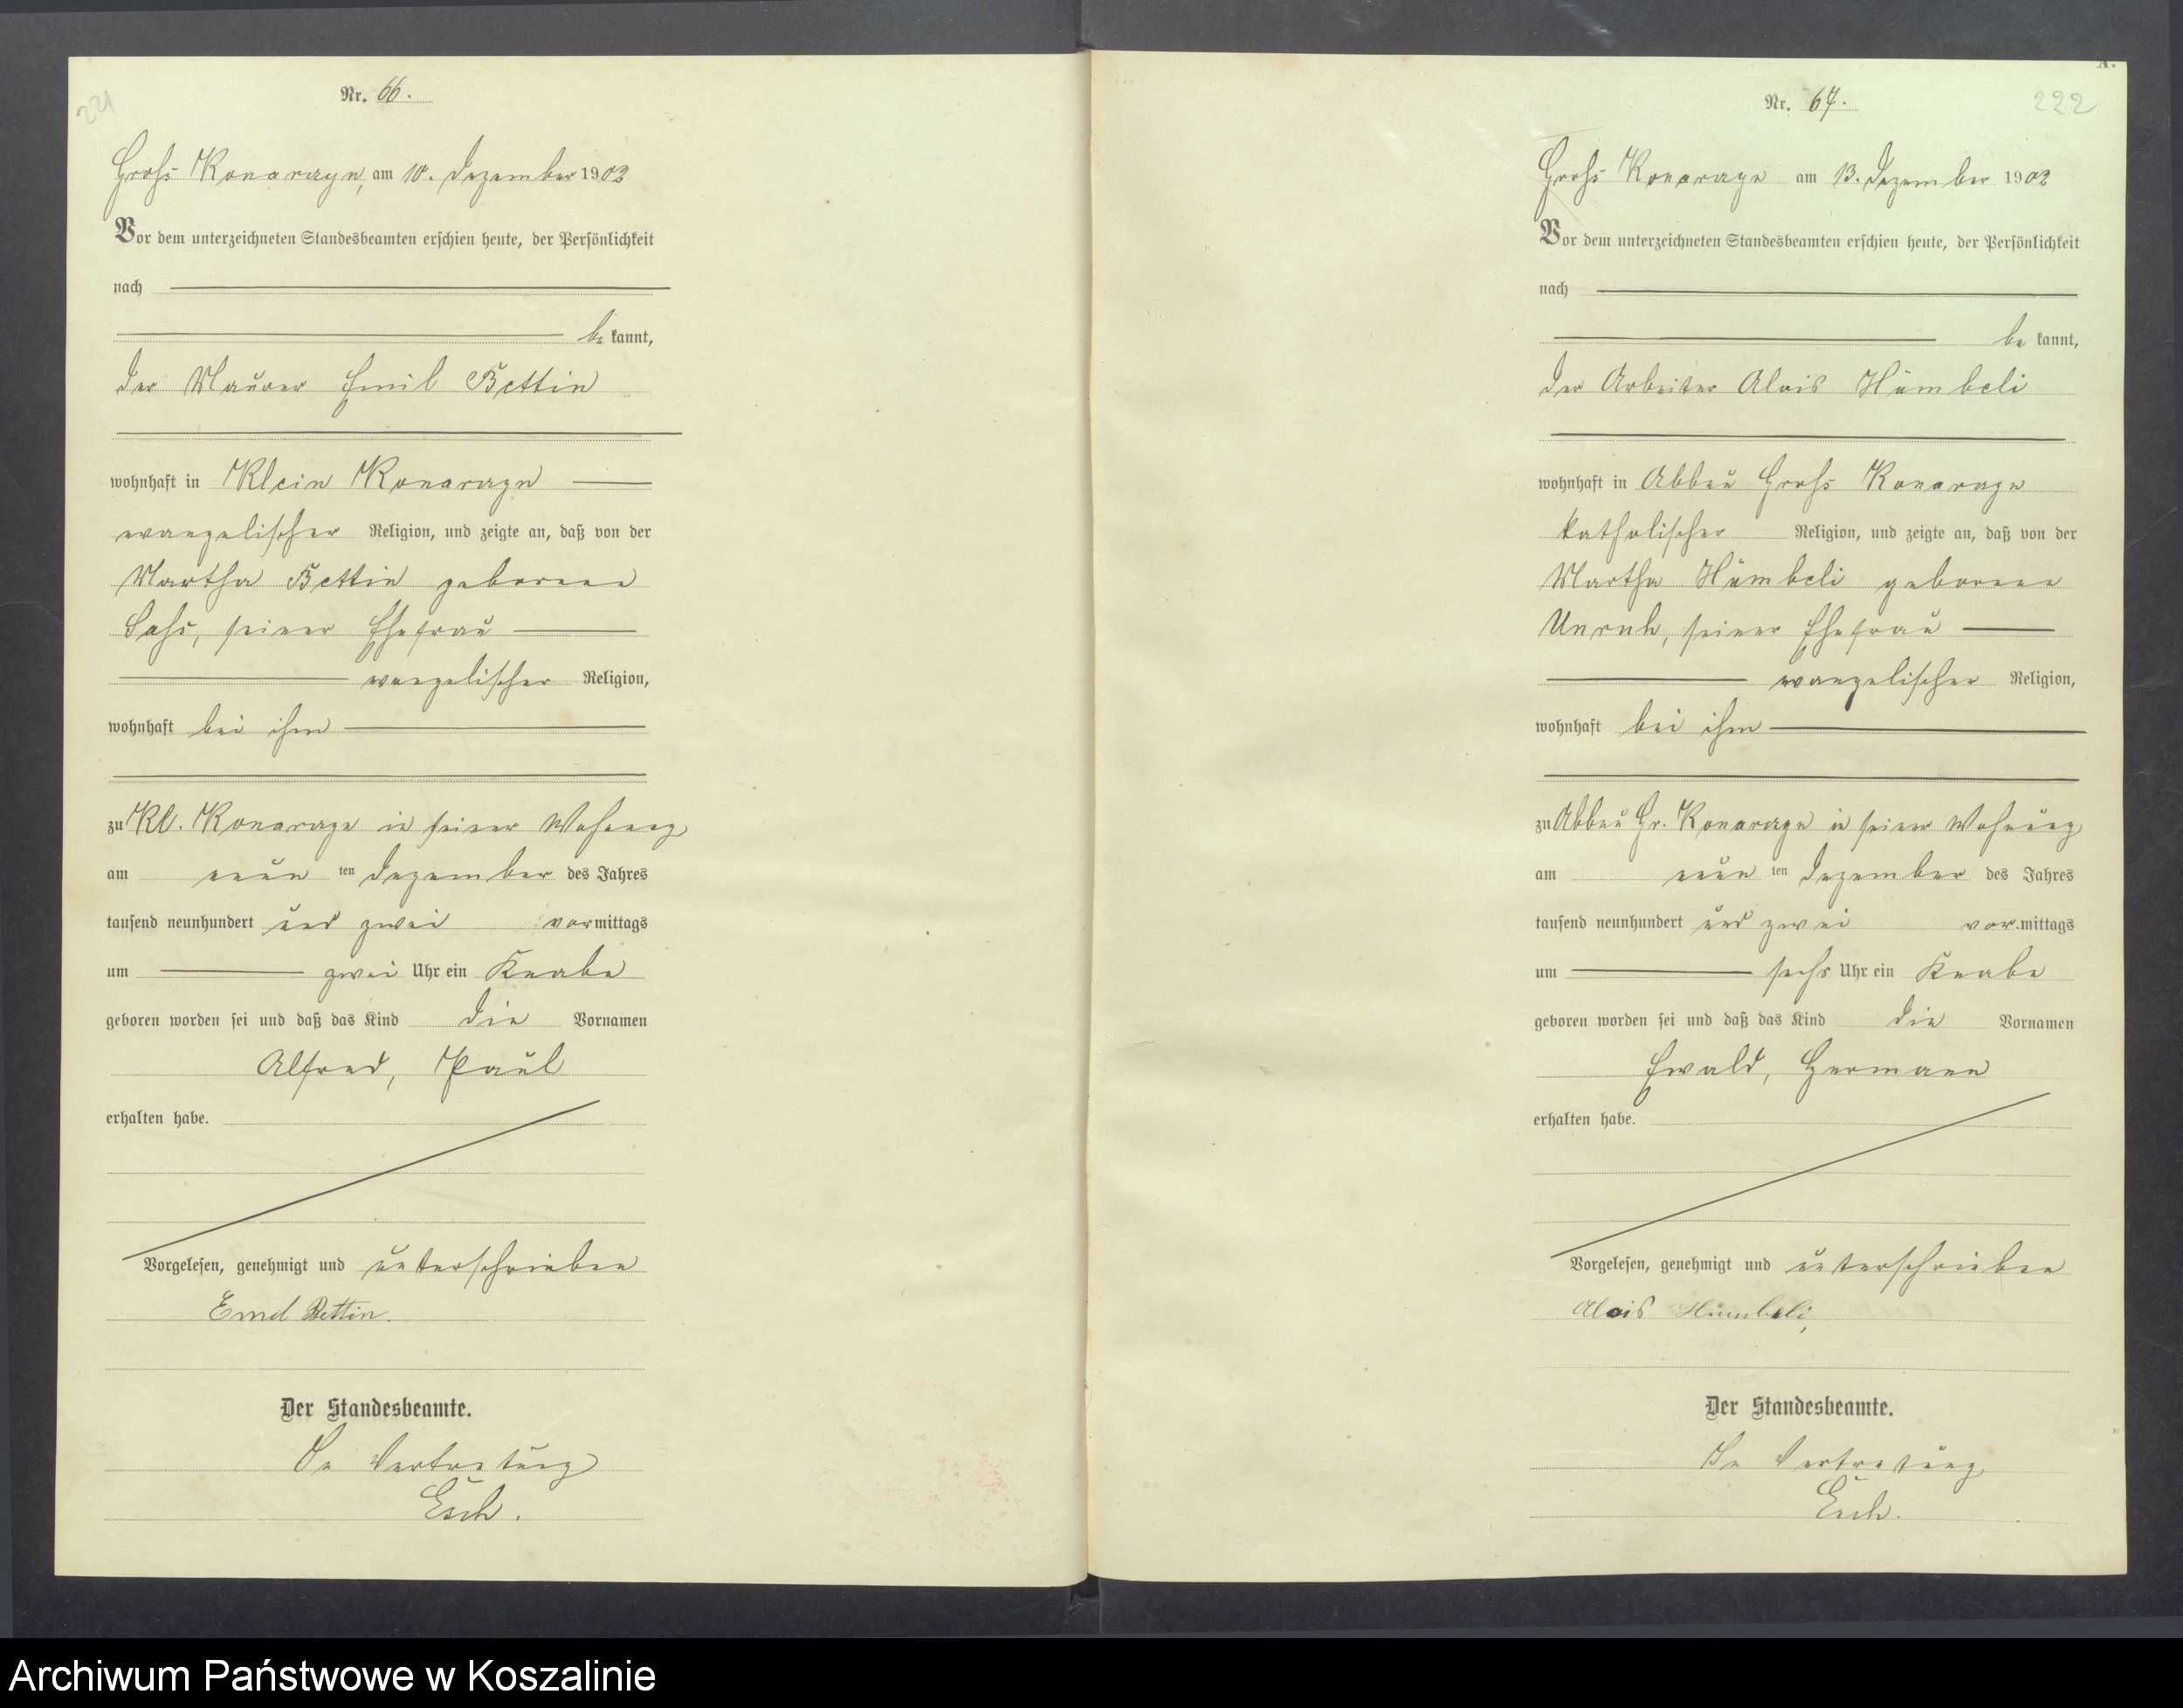 221
Nr. 66.
Groß Konarzyn, am 10. Dezember 1902
Vor dem unterzeichneten Standesbeamten erschien heute, der Persönlichkeit
nach
be kannt,
der Maurer Emil Bettin
wohnhaft in Klein Konarzyn
evangelischer Religion, und zeigte an, daß von der
Martha Bettin geborene
Saß, seiner Ehefrau
evangelischer Religion,
wohnhaft bei ihm
zu Kl. Konarzyn in seiner Wohnung
am neun ten Dezember des Jahres
tausend neunhundert und zwei vormittags
um zwei Uhr ein Knabe
geboren worden sei und daß das Kind die Vornamen
Alfred, Paul
erhalten habe.
Vorgelesen, genehmigt und unterschrieben
Emil Bettin.
Der Standesbeamte.
In Vertretung
Esch.
222
Nr. 67.
Groß Konarzyn am 13. Dezember 1902
Vor dem unterzeichneten Standesbeamten erschien heute, der Persönlichkeit
nach
be kannt,
der Arbeiter Alois Hümbeli
wohnhaft in Abbau Groß Konarzyn
katholischer Religion, und zeigte an, daß von der
Martha Hümbeli geborene
Unruh, seiner Ehefrau
evangelischer Religion,
wohnhaft bei ihm
zu Abbau Gr. Konarzyn in seiner Wohnung
am neun ten Dezember des Jahres
tausend neunhundert und zwei vor.mittags
um sechs Uhr ein Knabe
geboren worden sei und daß das Kind die Vornamen
Ewald, Hermann
erhalten habe.
Vorgelesen, genehmigt und unterschrieben
Alois Hümbeli,
Der Standesbeamte.
In Vertretung
Esch.
Archiwum Państwowe w Koszalinie